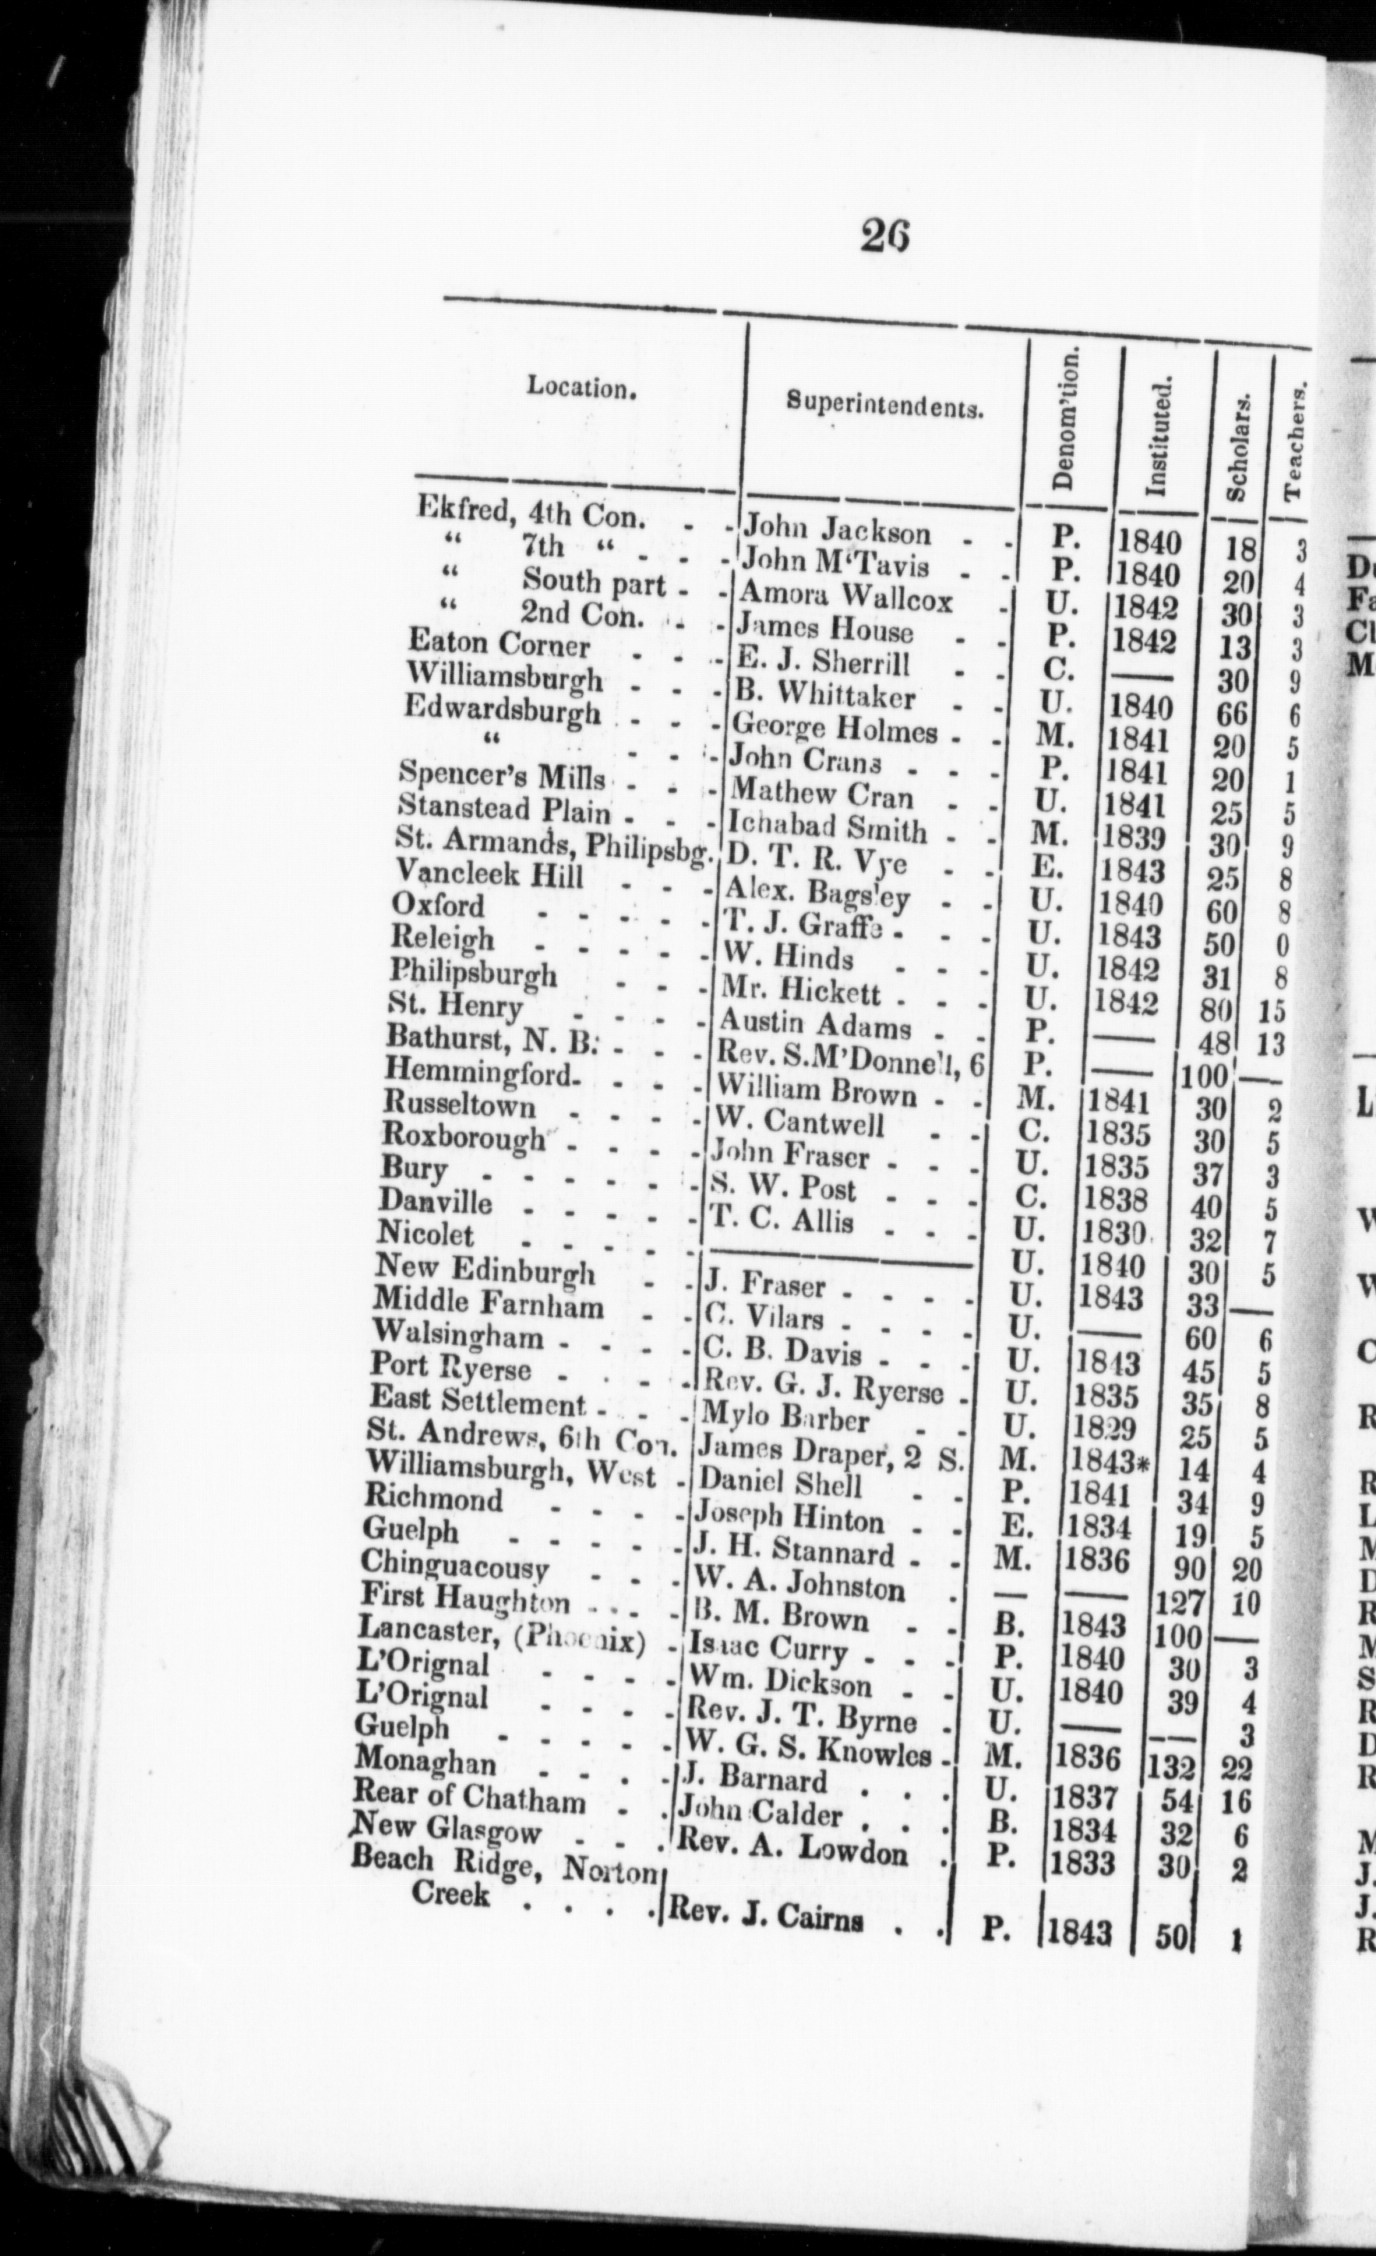 26
Location. Superintendents. Denom'tion. Instituted. Scholars. Teachers.
Ekfred, 4th Con. - - John Jackson - - P. 1840 18 3
“ 7th “ - - - John M‘Tavis - - P. 1840 20 4
“ South part - - Amora Wallcox - U. 1842 30 3
“ 2nd Con. - - James House - - P. 1842 13 3
Eaton Corner - - - E. J. Sherrill - - C. — 30 9
Williamsburgh - - - B. Whittaker - - U. 1840 66 6
Edwardsburgh - - - George Holmes - - M. 1841 20 5
“ - - - John Crans - - - P. 1841 20 1
Spencer's Mills - - - Mathew Cran - - U. 1841 25 5
Stanstead Plain - - - Ichabad Smith - - M. 1839 30 9
St. Armands, Philipsbg. D. T. R. Vye - - E. 1843 25 8
Vancleek Hill - - - Alex. Bagsley - - U. 1840 60 8
Oxford - - - - - T. J. Graffe - - - U. 1843 50 0
Releigh - - - - - W. Hinds - - - U. 1842 31 8
Philipsburgh - - - Mr. Hickett - - - U. 1842 80 15
St. Henry - - - - Austin Adams - - P. — 48 13
Bathurst, N. B. - - - Rev. S.M'Donnell, 6 P. — 100 —
Hemmingford - - - - William Brown - - M. 1841 30 2
Russeltown - - - - W. Cantwell - - C. 1835 30 5
Roxborough - - - - John Fraser - - - U. 1835 37 3
Bury - - - - - - S. W. Post - - - C. 1838 40 5
Danville - - - - - T. C. Allis - - - U. 1830 32 7
Nicolet - - - - - — U. 1840 30 5
New Edinburgh - - J. Fraser - - - - U. 1843 33 —
Middle Farnham - - C. Vilars - - - - U. — 60 6
Walsingham - - - - C. B. Davis - - - U. 1843 45 5
Port Ryerse - - - - Rev. G. J. Ryerse - U. 1835 35 8
East Settlement - - - Mylo Barber - - U. 1829 25 5
St. Andrews, 6th Con. James Draper, 2 S. M. 1843* 14 4
Williamsburgh, West - Daniel Shell - - P. 1841 34 9
Richmond - - - - Joseph Hinton - - E. 1834 19 5
Guelph - - - - - J. H. Stannard - - M. 1836 90 20
Chinguacousy - - - W. A. Johnston - — — 127 10
First Haughton - - - - B. M. Brown - - B. 1843 100 —
Lancaster, (Phoenix) - Isaac Curry - - - P. 1840 30 3
L'Orignal - - - - Wm. Dickson - - U. 1840 39 4
L'Orignal - - - - Rev. J. T. Byrne - U. — — 3
Guelph - - - - - W. G. S. Knowles - M. 1836 132 22
Monaghan - - - - J. Barnard . . . U. 1837 54 16
Rear of Chatham - . John Calder . . . B. 1834 32 6
New Glasgow - - . Rev. A. Lowdon . P. 1833 30 2
Beach Ridge, Norton
Creek . . . . Rev. J. Cairns . . P. 1843 50 1